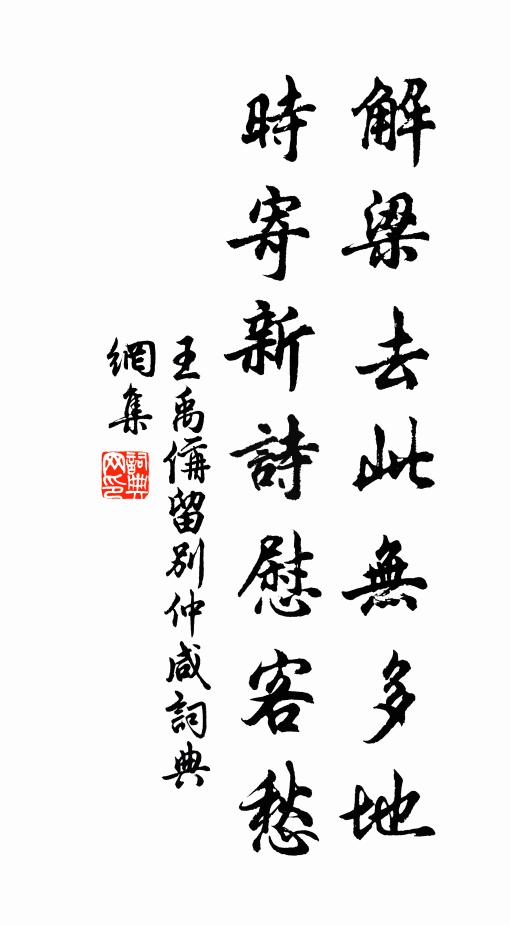 解梁去此無多地
時寄新詩慰客愁
王禹偁留別仲咸詞典
網集
詞典網印